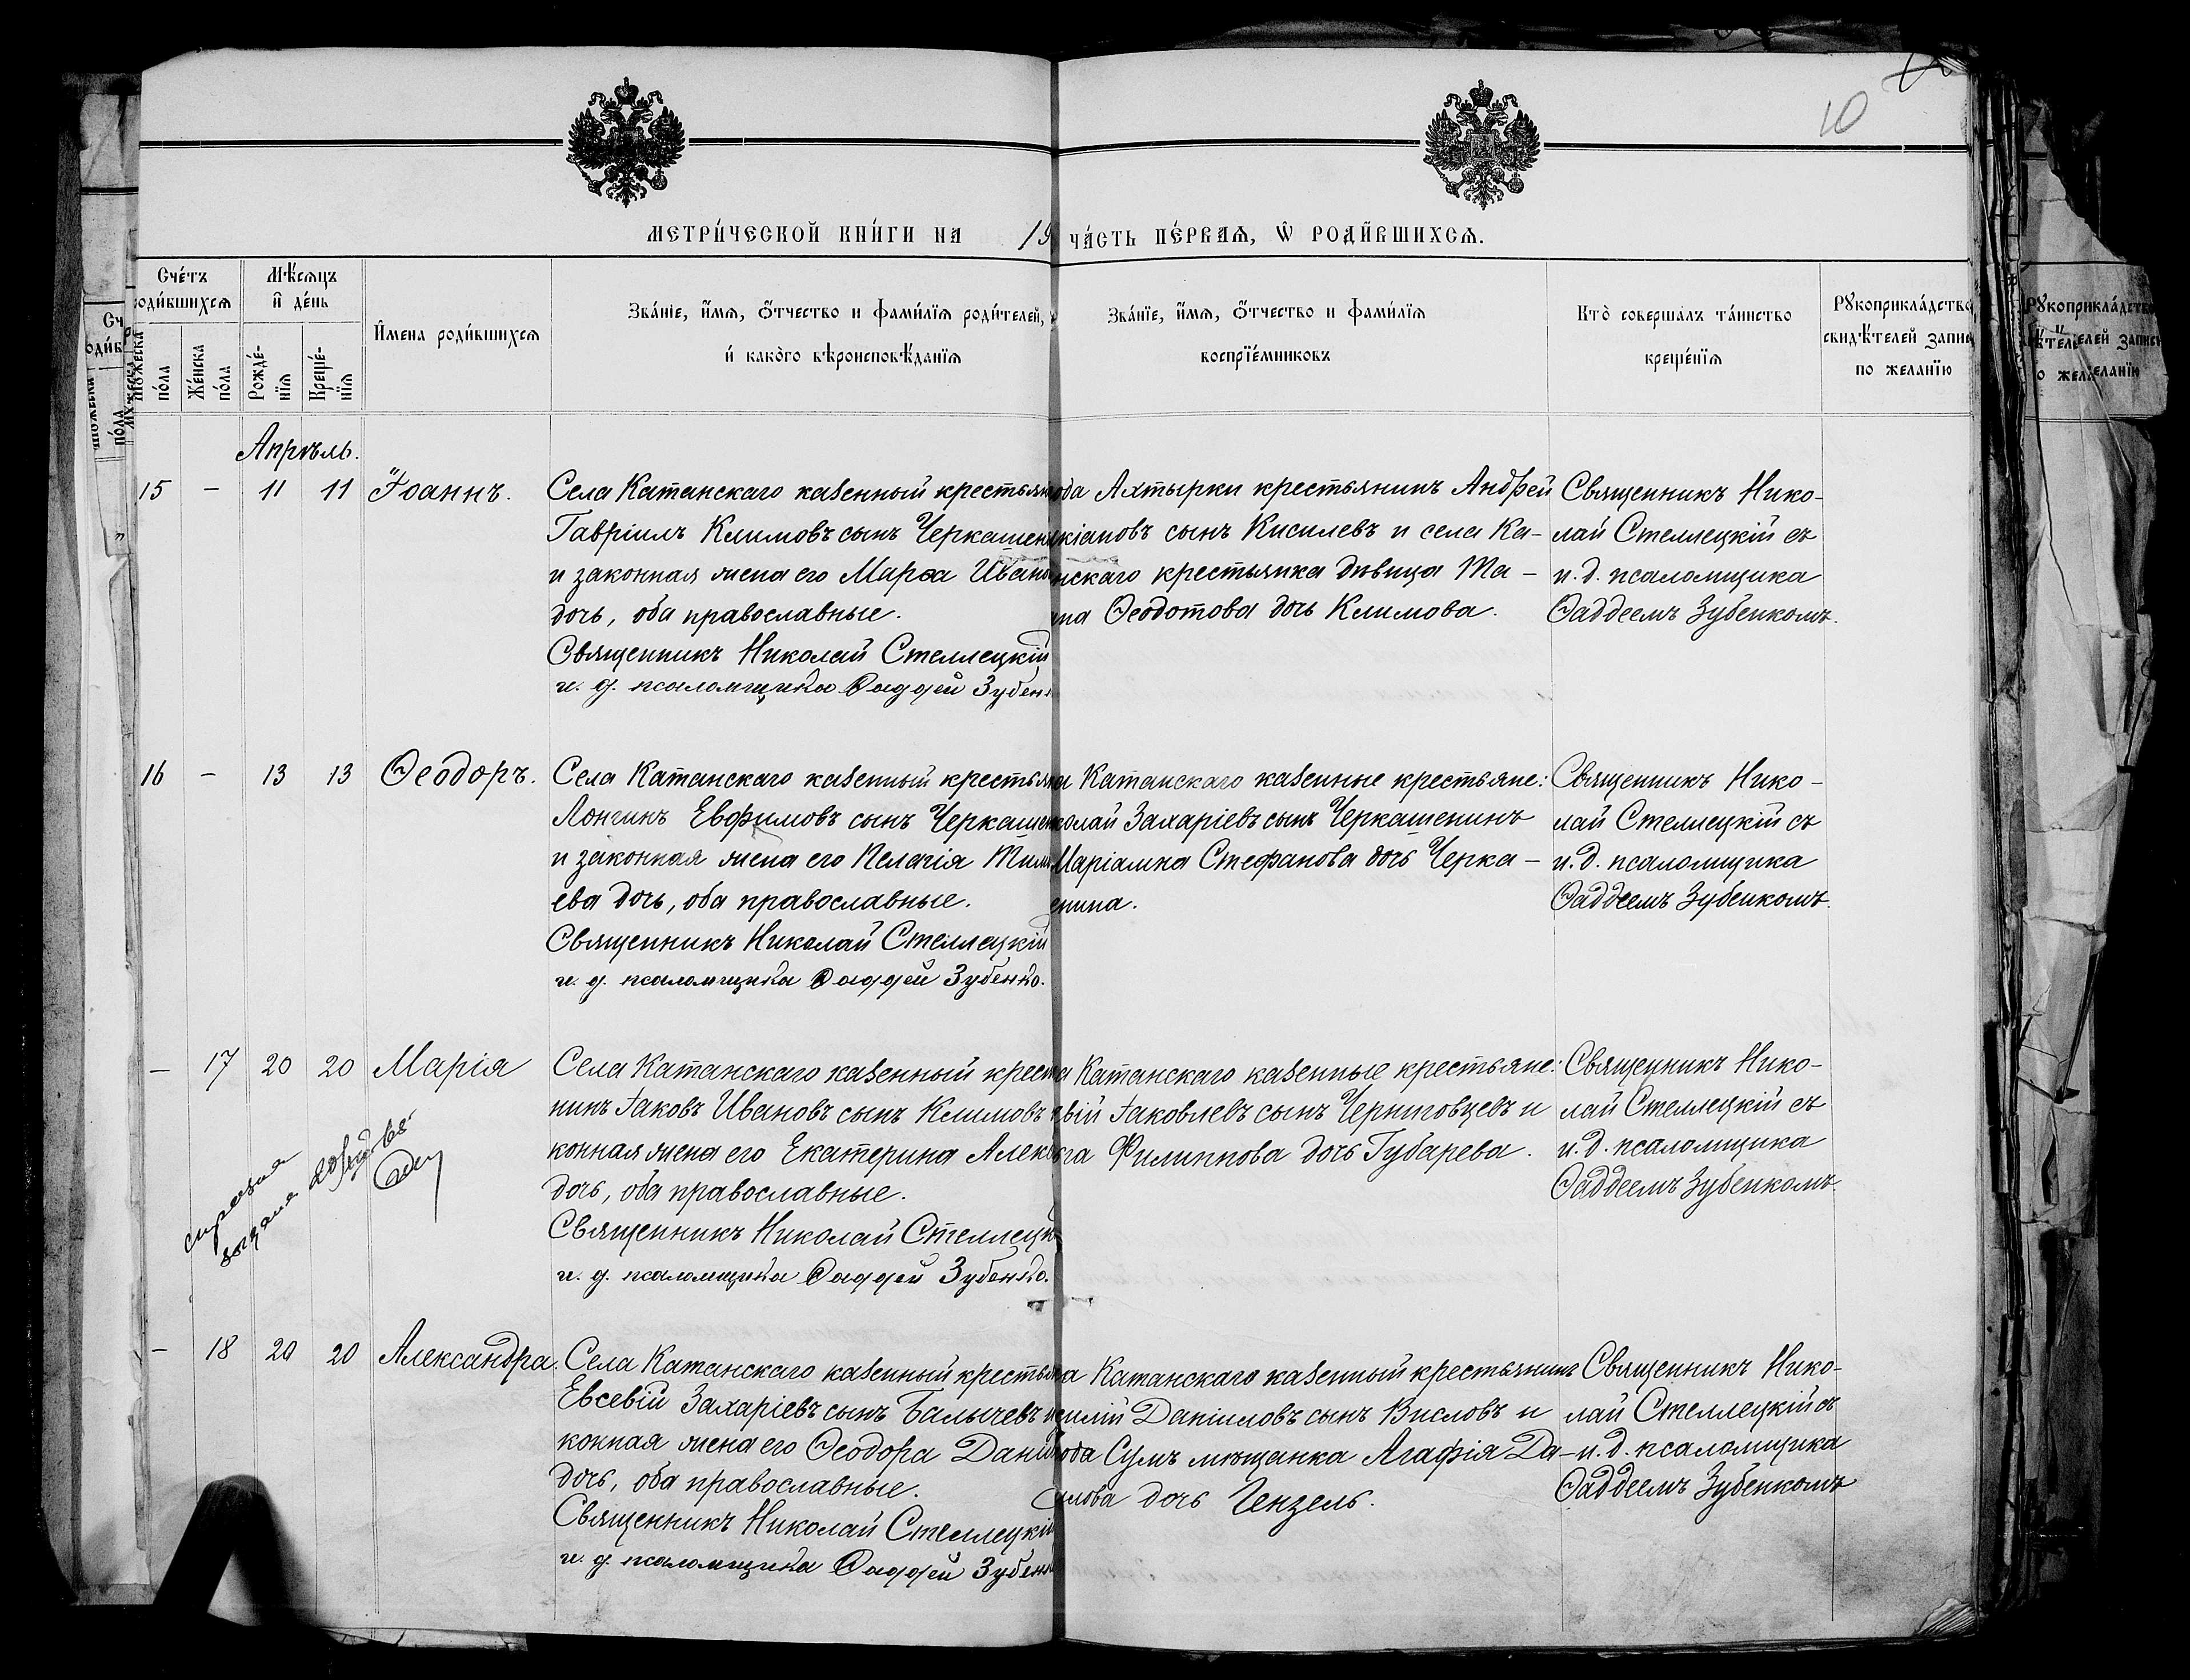 10
МЕТРИ́ЧЕСКОЙ КНИ́ГИ НА 19
ЧА́СТЬ ПЕ́РВАѦ, Ѡ РОДИ́ВШИХСѦ.
Сче́тъ
роди́вшихсѧ
Мѣ́сѧцъ
и де́нь
Мꙋ́жеска
по́ла
Же́нска
по́ла
Рожде́-
нїѧ
Креще́-
нїѧ
И҆мена роди́вшихсѧ
Зва́нїе, и҆́мѧ, ѻ҆́тчество и фами́лїѧ роди́телей,
и҆ како́гѡ вѣроисповѣ́данїѧ
Зва́нїе, и҆́мѧ, ѻ҆́тчество и фами́лїѧ
воспрїе́мниковъ
Кто̀ соверша́лъ та́инство
креще́нїѧ
Рꙋкоприкла́дство
свидѣ́телей запис
по желанїю
Апрѣль.
15 – 11 11 Іоаннъ.
Села Катанскаго казенный крестьян
Гавріилъ Климовъ сынъ Черкашен
и законная жена его Марѳа Ивано
дочь, оба православные.
Священникъ Николай Стеллецкій
и. д. псаломщика Ѳаддей Зубен
ода Ахтырки крестьянинъ Андрей
кіановъ сынъ Кисилевъ и села Ка-
нскаго крестьянка дѣвица Та-
на Ѳеодотова дочь Климова.
Священникъ Нико-
лай Стеллецкій съ
и. д. псаломщика
Ѳаддеемъ Зубенкомъ.
16 – 13 13 Ѳеодоръ.
Села Катанскаго казенный крестьян
Лонгинъ Евфимовъ сынъ Черкашен
и законная жена его Пелагія Тим
ева дочь, оба православные.
Священникъ Николай Стеллецкій
и. д. псаломщика Ѳаддей Зубенко.
а Катанскаго казенные крестьяне:
колай Захаріевъ сынъ Черкашенинъ
Маріамна Стефанова дочь Черка-
енина.
Священникъ Нико-
лай Стеллецкій съ
и. д. псаломщика
Ѳаддеемъ Зубенкомъ.
– 17 20 20 Марія
Села Катанскаго казенный крест
нинъ Іаковъ Ивановъ сынъ Климовъ
конная жена его Екатерина Алек
дочь, оба православные.
Священникъ Николай Стеллецк
и. д. псаломщика Ѳаддей Зубенко.
а Катанскаго казенные крестьяне:
вій Іаковлевъ сынъ Черниговцевъ и
га Филиппова дочь Губарева.
Священникъ Нико-
лай Стеллецкій съ
и. д. псаломщика
Ѳаддеемъ Зубенкомъ.
– 18 20 20 Александра.
Села Катанскаго казенный крестьян
Евсевій Захаріевъ сынъ Балычевъ и
конная жена его Ѳеодора Дани
дочь, оба православные.
Священникъ Николай Стеллецкій
и. д. псаломщика Ѳаддей Зубен
а Катанскаго казенный крестьянинъ
силій Даніиловъ сынъ Висловъ и
ода Сумъ мѣщанка Агафія Да-
илова дочь Гензель.
Священникъ Нико-
лай Стеллецкій съ
и. д. псаломщика
Ѳаддеемъ Зубенкомъ